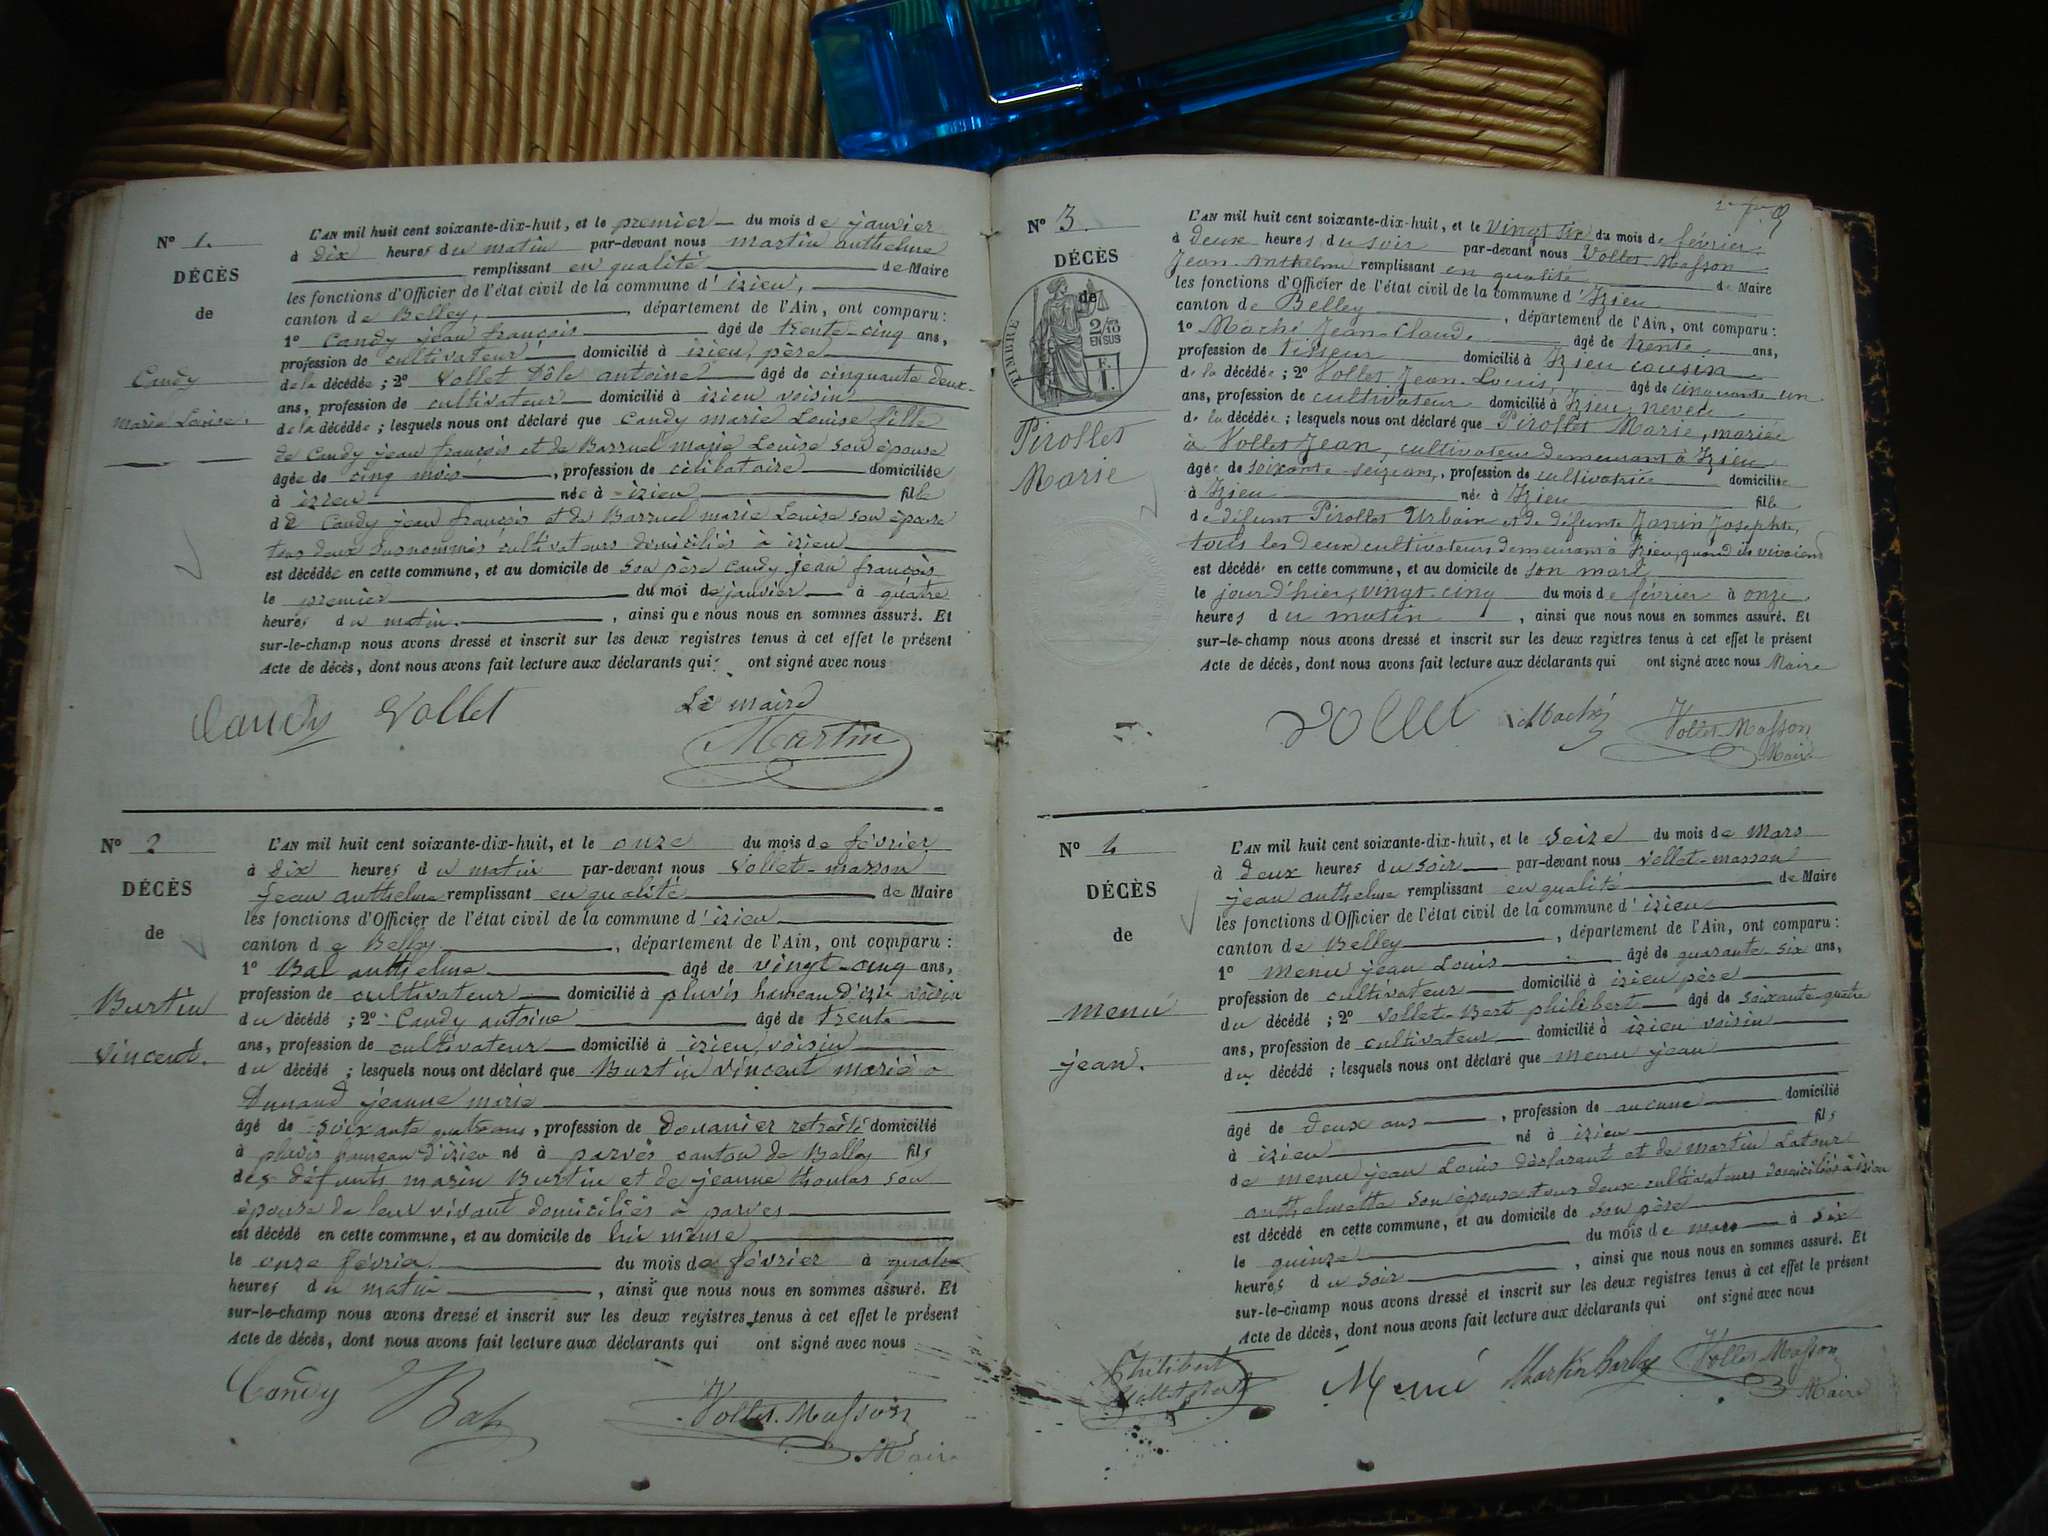 N° 1.
DÉCÈS
de
Candy
marie Louise.
L'AN mil huit cent soixante-dix-huit, et le premier du mois de janvier
à dix heures du matin par-devant nous martin anthelme
remplissant en qualité de Maire
les fonctions d'Officier de l'état civil de la commune d'izieu,
canton de Belley, département de l'Ain, ont comparu :
1° Candy jean françois âgé de trente-cinq ans,
profession de cultivateur domicilié à izieu, père
de la décédée ; 2° Vollet Dôle antoine âgé de cinquante deux
ans, profession de cultivateur domicilié à izieu voisin
de la décédée ; lesquels nous ont déclaré que Candy marie Louise fille
de Candy jean françois et de Barruel marie Louise son épouse
âgée de cinq mois, profession de célibataire domiciliée
à izieu née à izieu fille
de Candy jean françois et de Barruel marie Louise son épouse
tous deux susnommés cultivateurs domiciliés à izieu
est décédée en cette commune, et au domicile de son père Candy jean françois
le premier du moi de janvier à quatre
heures du matin, ainsi que nous nous en sommes assuré. Et
sur-le-champ nous avons dressé et inscrit sur les deux registres tenus à cet effet le présent
Acte de décès, dont nous avons fait lecture aux déclarants qui ont signé avec nous
Candy Vollet Le maire
Martin
N° 2
DÉCÈS
de
Burtin
vincent.
L'AN mil huit cent soixante-dix-huit, et le onze du mois de février
à dix heures du matin par-devant nous Vollet-masson
jean anthelme remplissant en qualité de Maire
les fonctions d'Officier de l'état civil de la commune d'izieu
canton de Belley, département de l'Ain, ont comparu :
1° Bal anthelme âgé de vingt-cinq ans,
profession de cultivateur domicilié à pluvis hameau d'izieu voisin
du décédé ; 2° Candy antoine âgé de trente
ans, profession de cultivateur domicilié à izieu, voisin
du décédé ; lesquels nous ont déclaré que Burtin vincent marié à
Dunand jeanne marie
âgé de soixante quatre ans, profession de Douanier retraité domicilié
à pluvis hameau d'izieu né à parves canton de Belley fils
des défunts marin Burtin et de jeanne thomas son
épouse de leur vivant domiciliés à parves
est décédé en cette commune, et au domicile de lui même
le onze février du mois de février à quatre
heures du matin, ainsi que nous nous en sommes assuré. Et
sur-le-champ nous avons dressé et inscrit sur les deux registres tenus à cet effet le présent
Acte de décès, dont nous avons fait lecture aux déclarants qui ont signé avec nous
Candy Bal Vollet-Masson
Maire
N° 3.
DÉCÈS
de
TIMBRE
2/10
EN SUS
Pirollet
Marie
L'AN mil huit cent soixante-dix-huit, et le Vingt six du mois de février
à deux heures du soir par-devant nous Vollet-Masson
Jean-Anthelme remplissant en qualité de Maire
les fonctions d'Officier de l'état civil de la commune d'Izieu
canton de Belley, département de l'Ain, ont comparu :
1° Maché Jean-Claude âgé de trente ans,
profession de tisseur domicilié à Izieu cousin
de la décédée ; 2° Vollet Jean-Louis, âgé de cinquante un
ans, profession de cultivateur domicilié à Izieu, neveu
de la décédée ; lesquels nous ont déclaré que Pirollet Marie, mariée
à Vollet Jean, cultivateur demeurant à Izieu
âgée de soixante-seize ans, profession de cultivatrice domiciliée
à Izieu née à Izieu fille
de défunt Pirollet Urbain et de défunte Janin Josephte,
tous les deux cultivateurs demeurant à Izieu, quand ils vivaient
est décédé en cette commune, et au domicile de son mari
le jour d'hier, vingt-cinq du mois de février à onze
heures du matin, ainsi que nous nous en sommes assuré. Et
sur-le-champ nous avons dressé et inscrit sur les deux registres tenus à cet effet le présent
Acte de décès, dont nous avons fait lecture aux déclarants qui ont signé avec nous Maire
Vollet Maché Vollet-Masson
Maire
N° 4
DÉCÈS
de
menu
jean.
L'AN mil huit cent soixante-dix-huit, et le seize du mois de mars
à deux heures du soir par-devant nous vollet-masson
jean anthelme remplissant en qualité de Maire
les fonctions d'Officier de l'état civil de la commune d'izieu
canton de Belley, département de l'Ain, ont comparu :
1° menu jean Louis âgé de quarante-six ans,
profession de cultivateur domicilié à izieu père
du décédé ; 2° vollet-Bert philibert âgé de soixante-quatre
ans, profession de cultivateur domicilié à izieu voisin
du décédé ; lesquels nous ont déclaré que menu jean
âgé de deux ans, profession de aucune domicilié
à izieu né à izieu fils
de menu jean Louis déclarant et de martin Latour
anthelmette son épouse tous deux cultivateurs domiciliés à izieu
est décédé en cette commune, et au domicile de son père
le quinze du mois de mars à six
heures du soir, ainsi que nous nous en sommes assuré. Et
sur-le-champ nous avons dressé et inscrit sur les deux registres tenus à cet effet le présent
Acte de décès, dont nous avons fait lecture aux déclarants qui ont signé avec nous
Philibert
Menu Martin Vollet-Masson
Maire